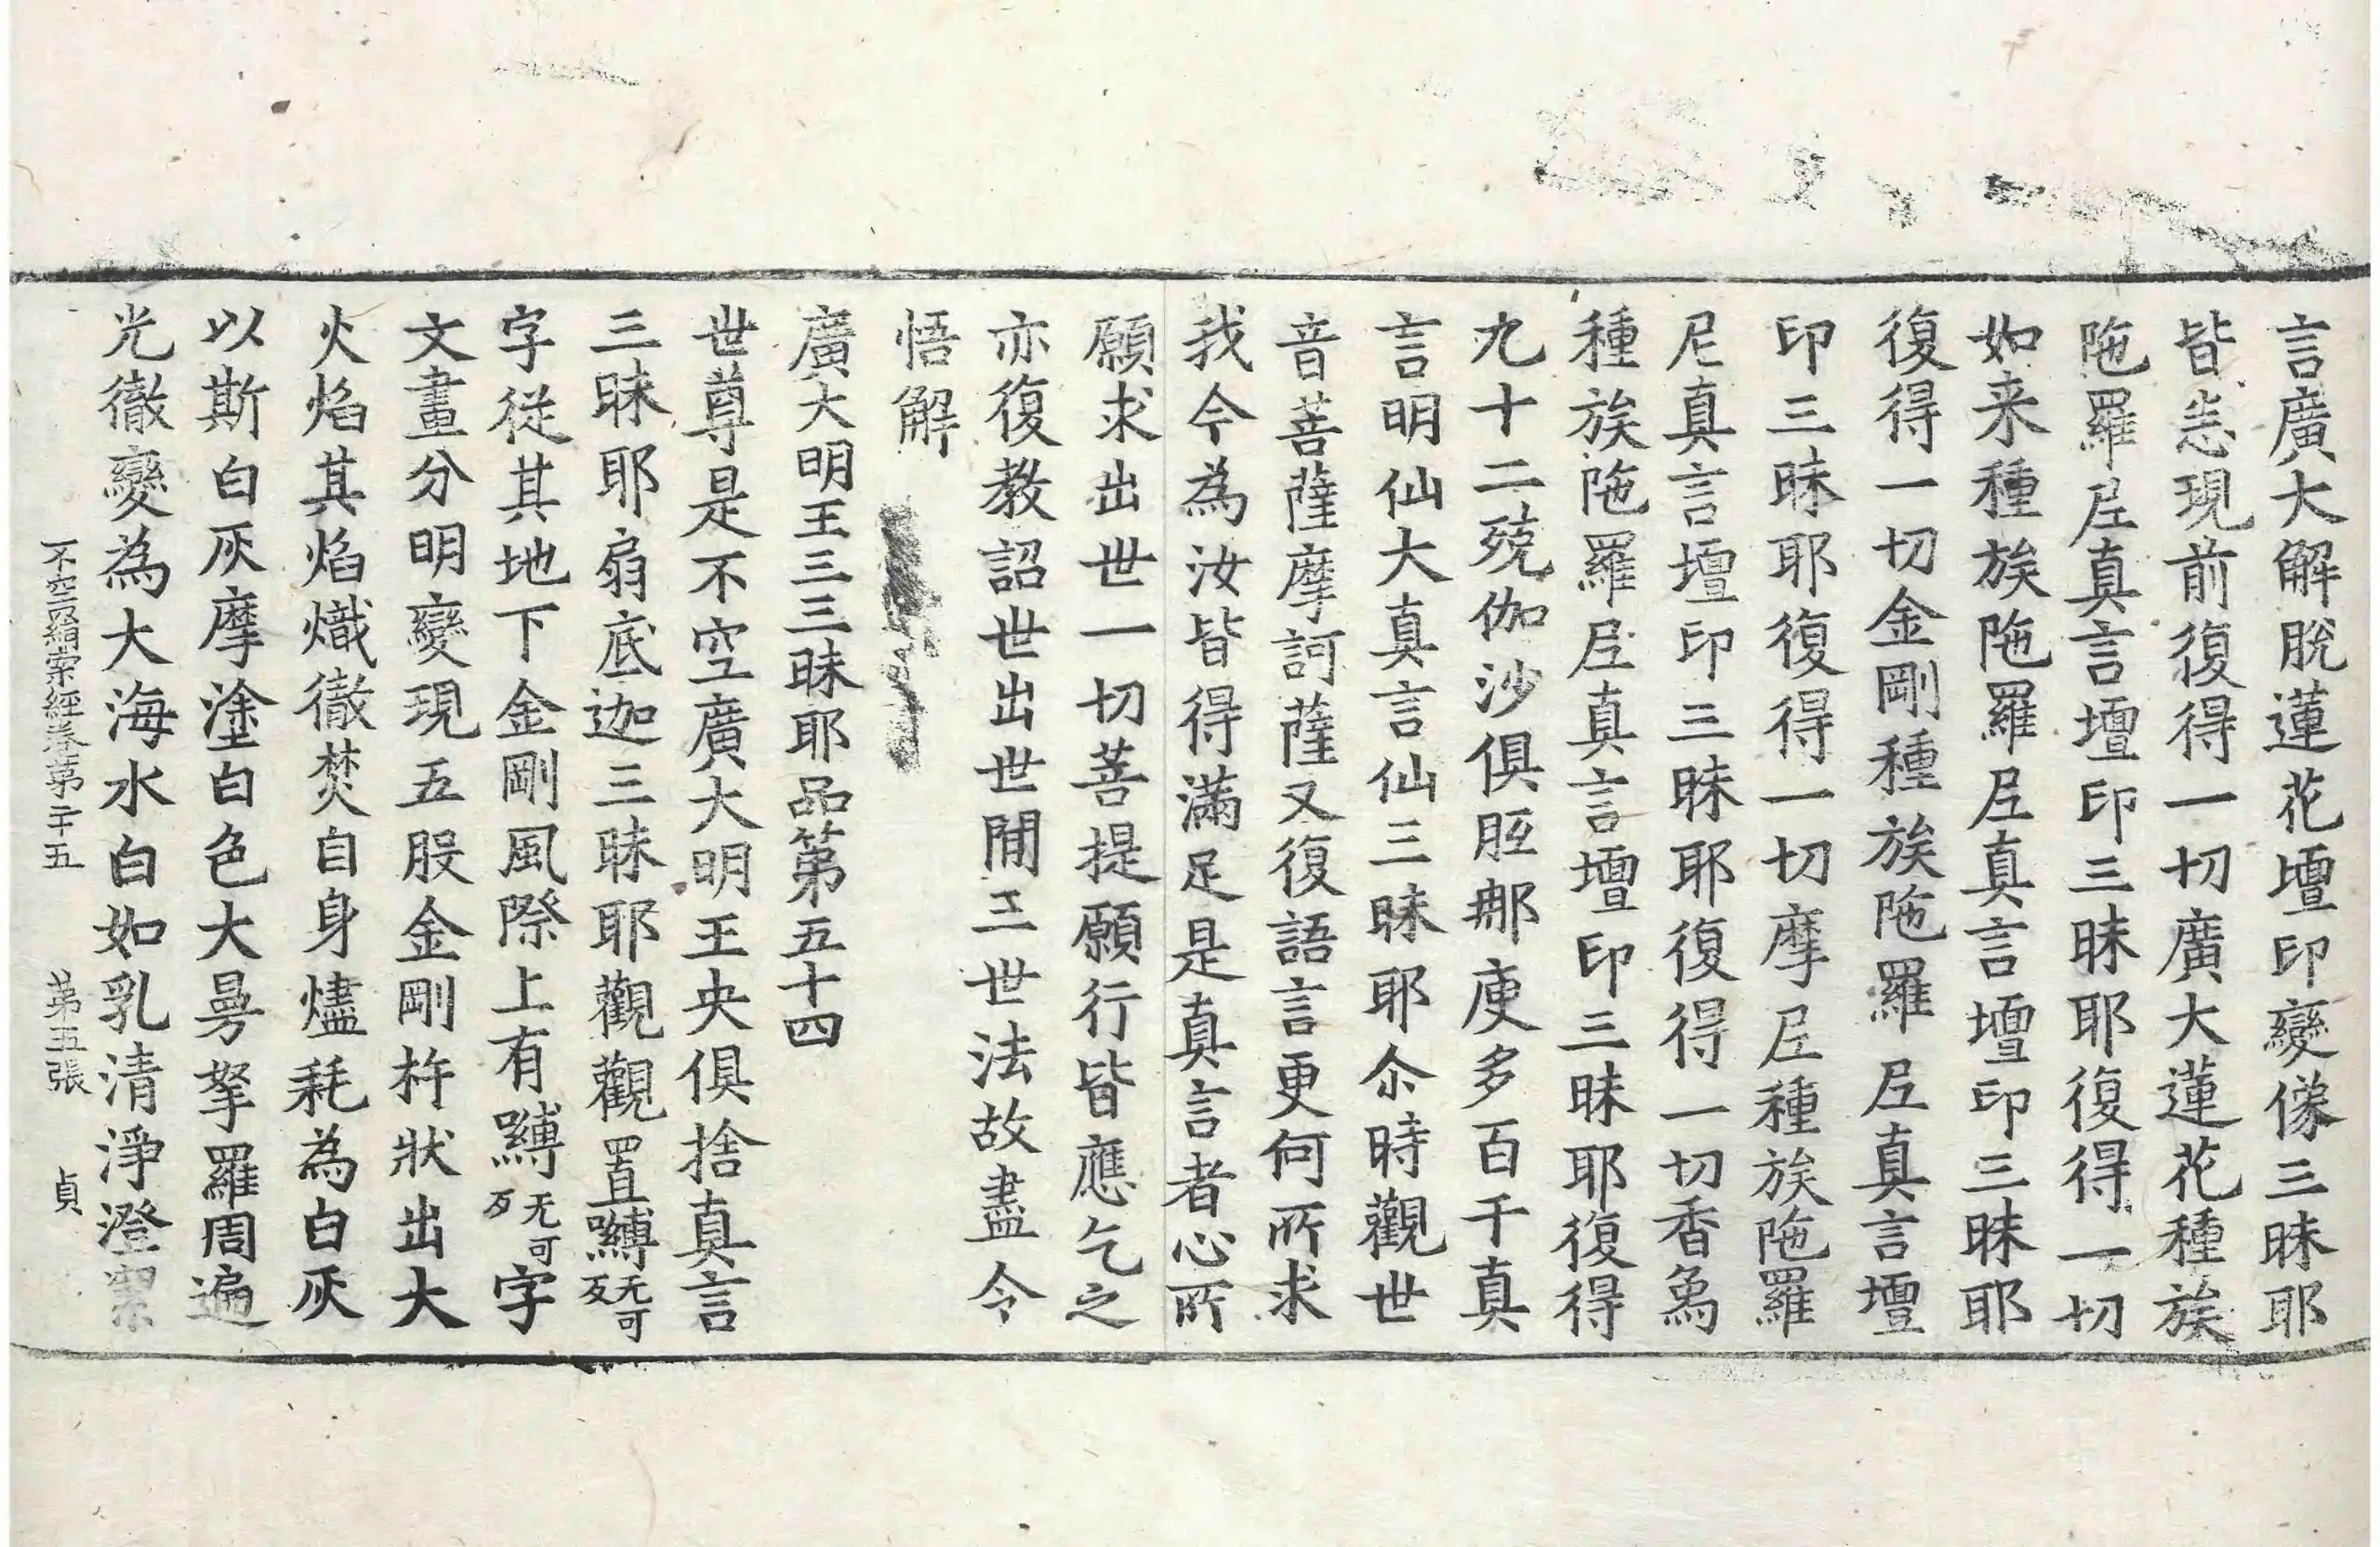 言廣大解脫蓮花壇印變像三昧耶
皆悉現前復得一切廣大蓮花種族
陁羅尼真言壇印三昧耶復得一切
如来種族陁羅尼真言壇印三昧耶
復得一切金剛種族陁羅尼真言壇
印三昧耶復得一切摩尼種族陁羅
尼真言壇印三昧耶復得一切香象
種族陁羅尼真言壇印三昧耶復得
九十二殑伽沙俱胝那庾多百千真
言明仙大真言仙三昧耶尒時觀世
音菩薩摩訶薩又復語言更何所求
我今為汝皆得滿足是真言者心所
願求出世一切菩提願行皆應乞之
亦復教詔世出世間三世法故盡令
悟解
廣大明王三三昧耶品第五十四
世尊是不空廣大明王央俱捨真言
三昧耶扇底迦三昧耶觀觀置䶈无可反
字從其地下金剛風際上有䶈无可反字
文畫分明變現五股金剛杵狀出大
火焰其焰熾徹焚自身燼耗為白灰
以斯白灰摩塗白色大曼拏羅周遍
光徹變為大海水白如乳清淨澄潔
不空羂索經卷第二十五 第五張 貞